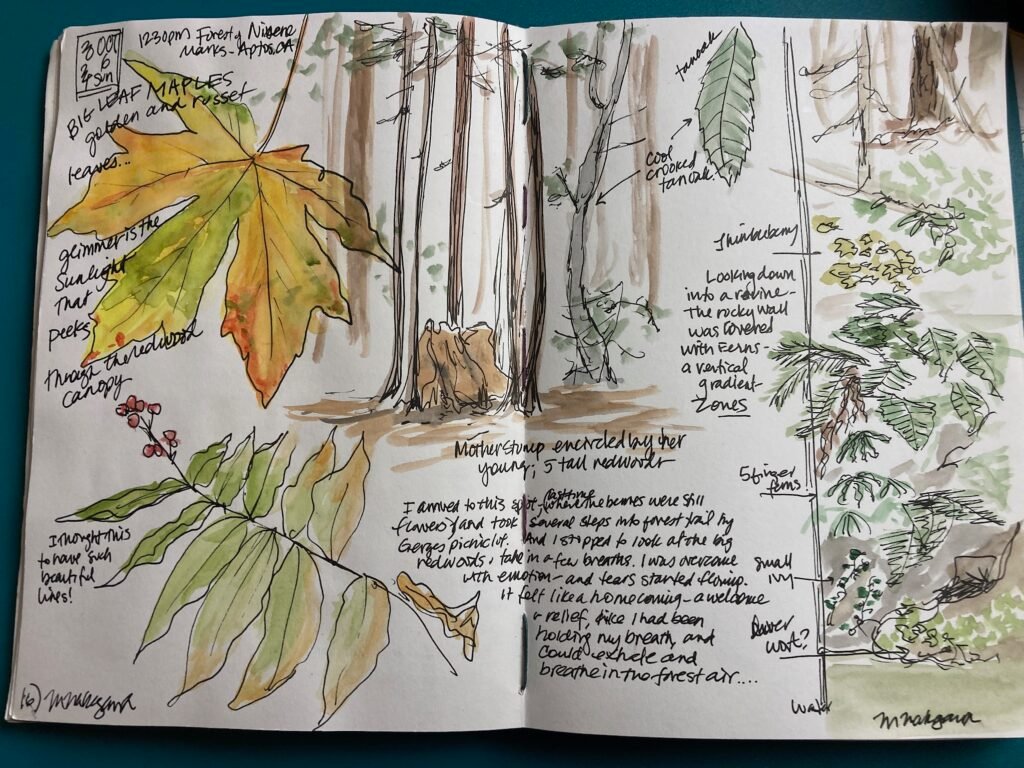 3 Oct
6
24 Sun
1230pm Forest of Nisene
Marks - Aptos, CA
BIG LEAF MAPLES
golden and russet
leaves...
glimmer is the
sunlight
that
peeks
through the redwood
canopy
I thought this
to have such
beautiful
lines!
Mother stump encircled by her
young; 5 tall redwoods
tanoak
cool
crooked
tanoak.
I arrived to this spot - last time where the berries were still
flowers and took several steps into forest trail by
Gerzes picnic lot. And I stopped to look at the big
redwoods, take in a few breaths. I was overcome
with emotion - and tears started flowing.
It felt like a homecoming - a welcome
+ relief, since I had been
holding my breath, and
could exhale and
breathe in two forest air....
Thimbleberry
Looking down
into a ravine -
the rocky wall
was covered
with Ferns -
a vertical
gradient
Zones
5 finger
ferns
small
ivy
wort?
Water
(6) MNakagawa
MNakagawa